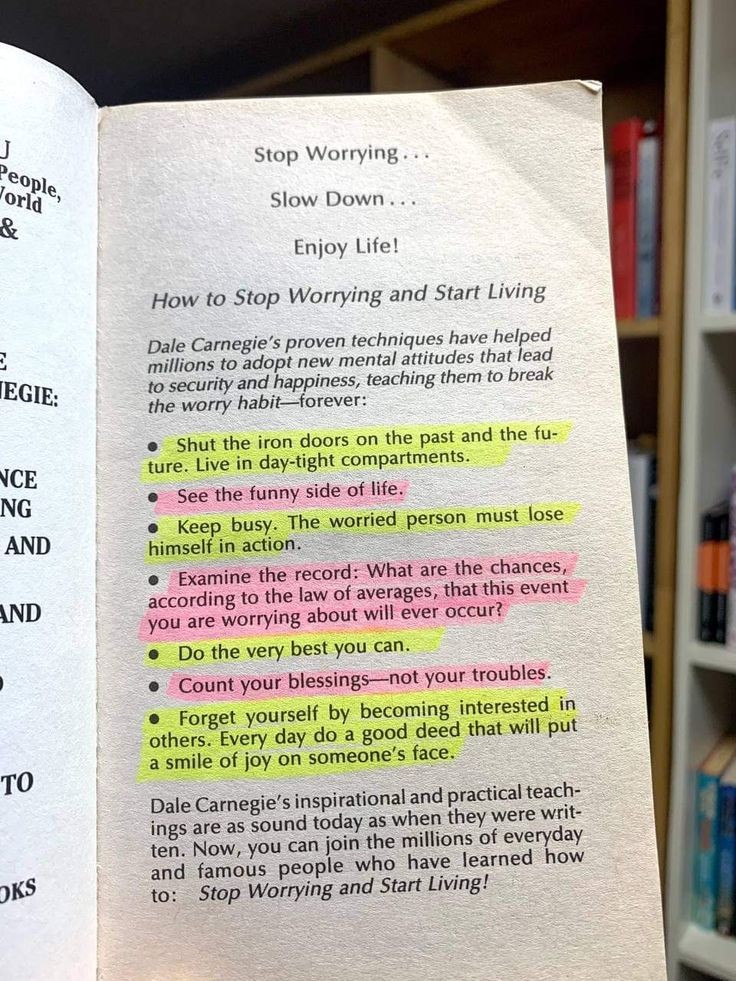 J
People,
World
&
E
NEGIE:
NCE
NG
AND
AND
O
TO
OKS
Stop Worrying...
Slow Down...
Enjoy Life!
How to Stop Worrying and Start Living
Dale Carnegie's proven techniques have helped
millions to adopt new mental attitudes that lead
to security and happiness, teaching them to break
the worry habit—forever:
● Shut the iron doors on the past and the fu-
ture. Live in day-tight compartments.
● See the funny side of life.
● Keep busy. The worried person must lose
himself in action.
● Examine the record: What are the chances,
according to the law of averages, that this event
you are worrying about will ever occur?
● Do the very best you can.
● Count your blessings—not your troubles.
● Forget yourself by becoming interested in
others. Every day do a good deed that will put
a smile of joy on someone's face.
Dale Carnegie's inspirational and practical teach-
ings are as sound today as when they were writ-
ten. Now, you can join the millions of everyday
and famous people who have learned how
to: Stop Worrying and Start Living!